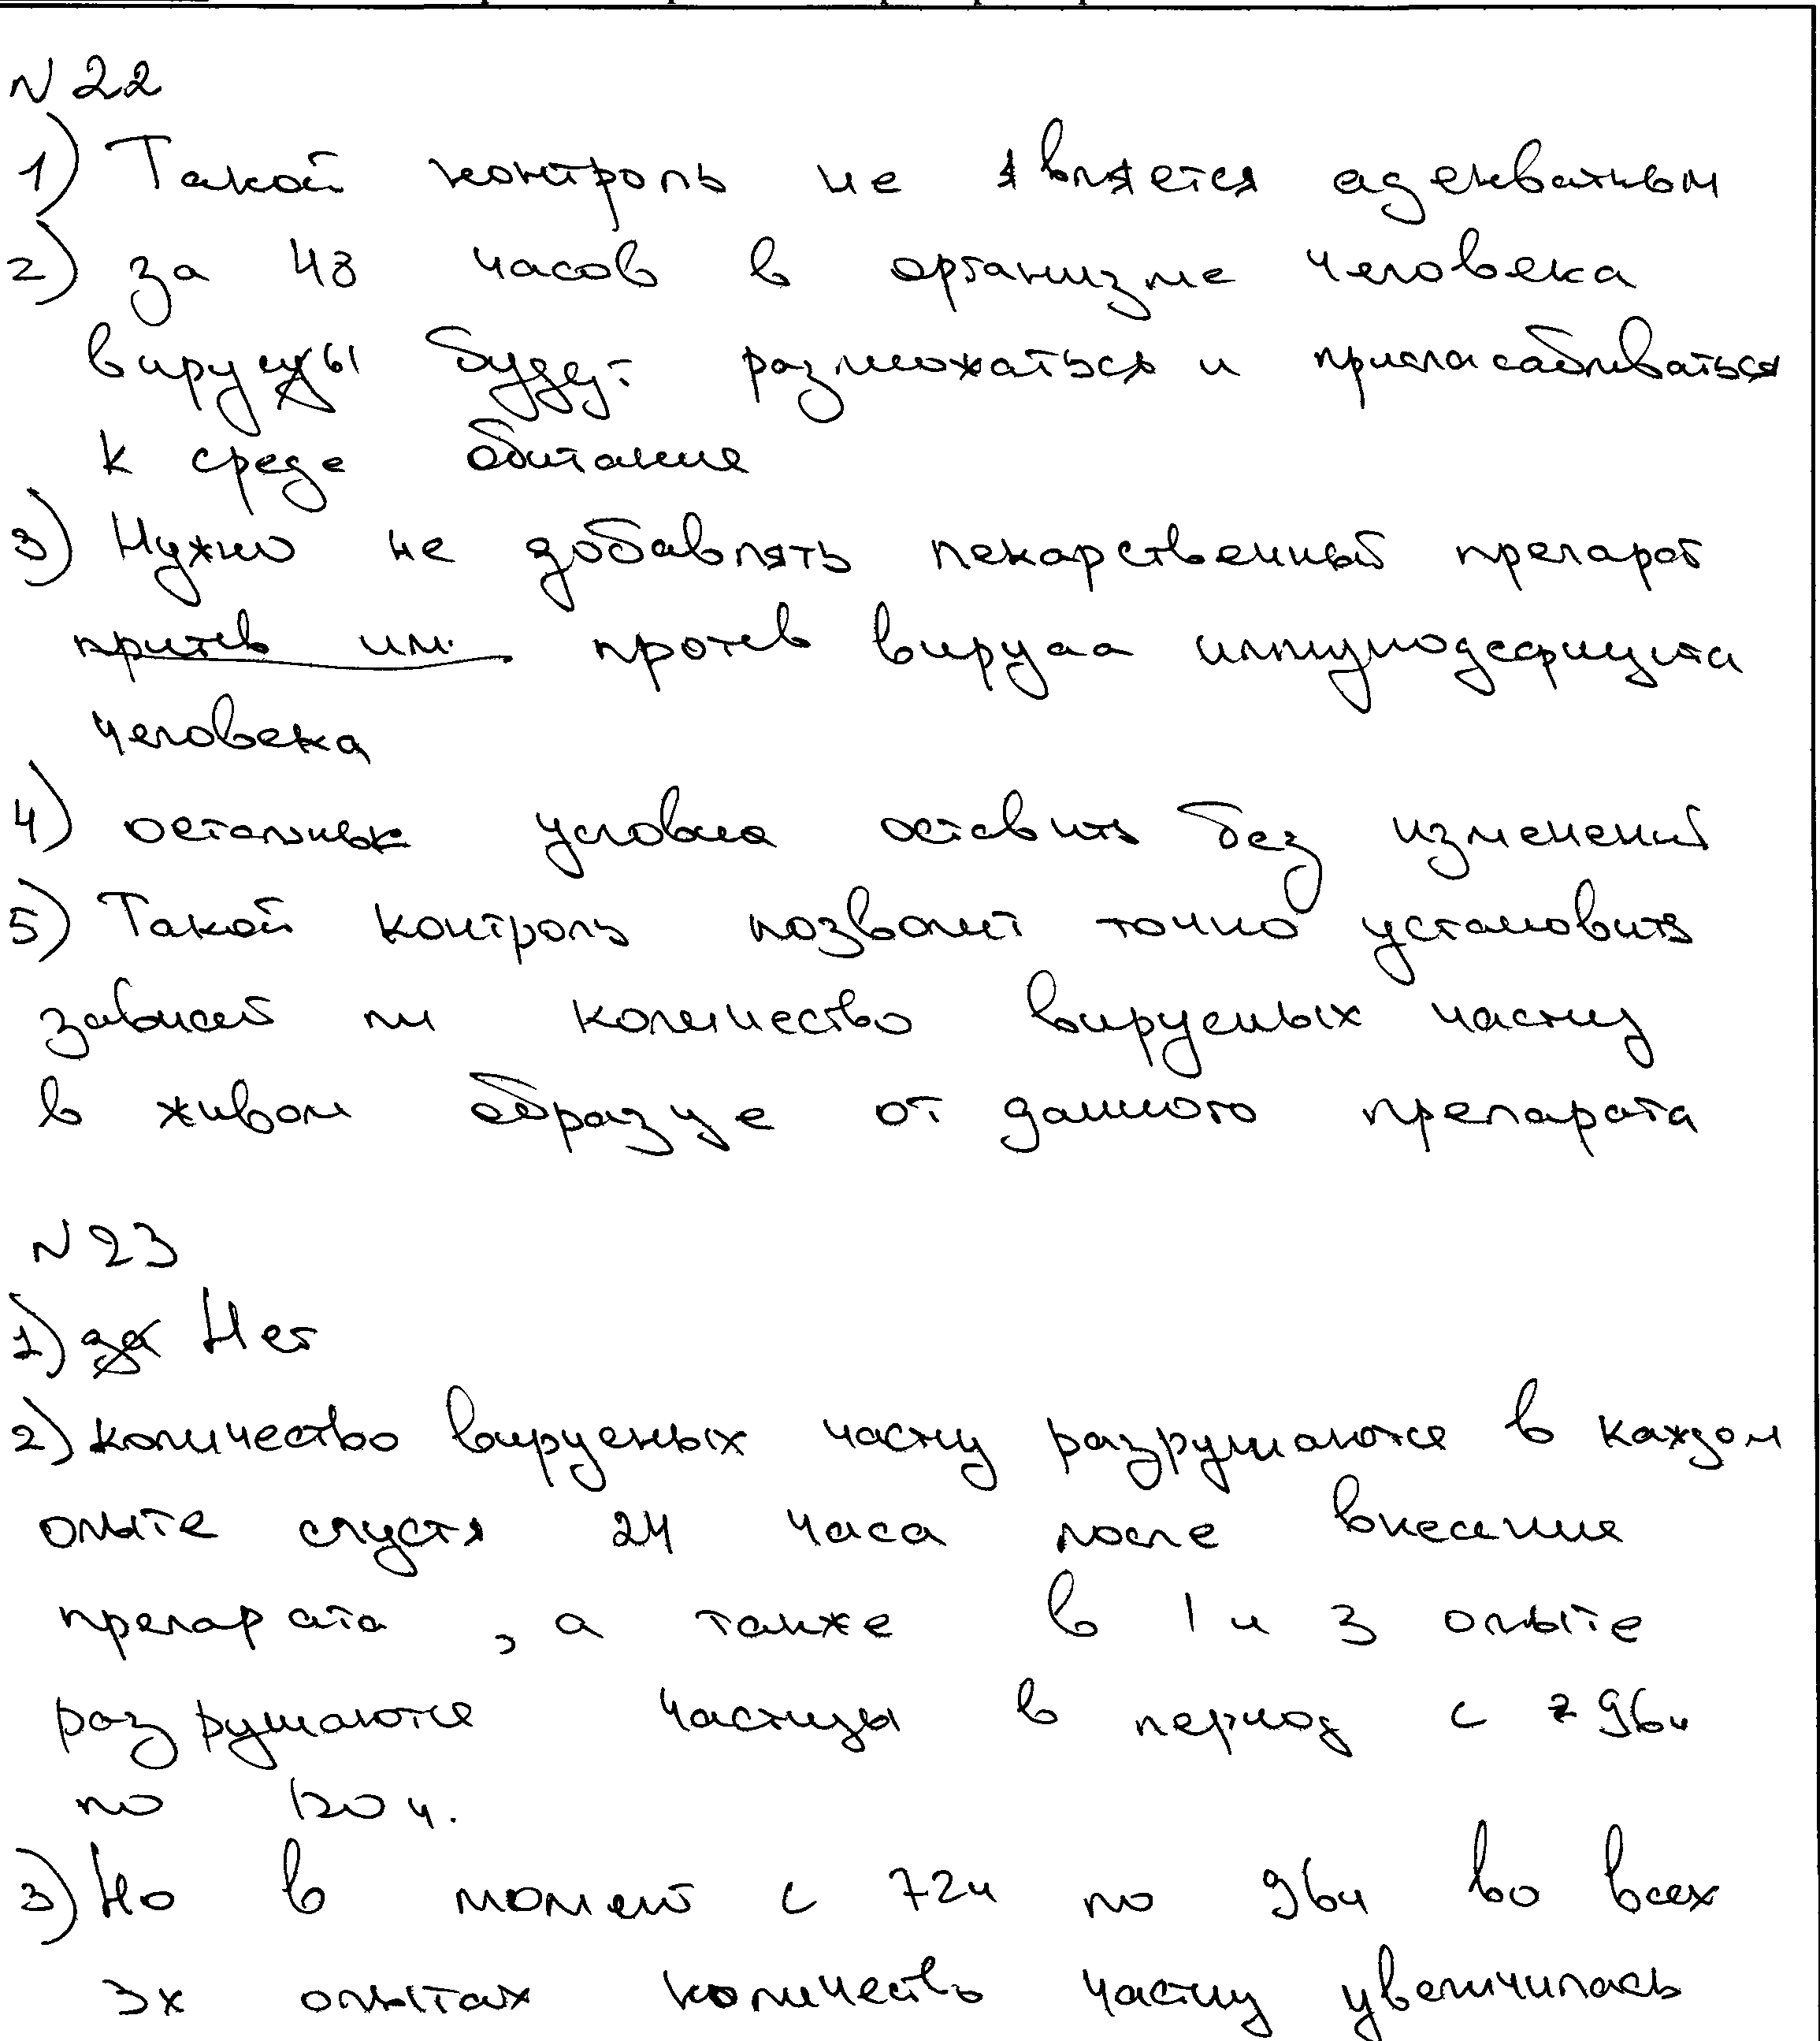 N 22
1) Такой контроль не является адекватным
2) за 48 часов в организме человека
вирусы будут размножаться и приспасабливаться
к среде обитание
3) Нужно не добавлять лекарственный препарат
притев им. протев вируса иммунодефицита
человека
4) остальные условия оставить без изменений
5) Такой контроль позволит точно установить
зависет ли количество вирусных частиц
в живом образце от данного препарата
N 23
1) да Нет
2) количество вирусных частиц разрушаются в каждом
опыте спустя 24 часа после внесения
препарата, а также в 1 и 3 опыте
разрушаются частицы в период с 96ч
по 120 ч.
3) Но в момент с 72ч по 96ч во всех
3х опытах количество частиц увеличилась